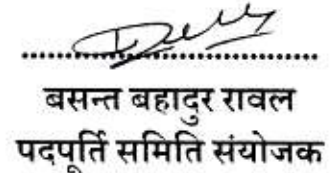 बसन्त बहादुर रावल
पदपूर्ति समिति संयोजक